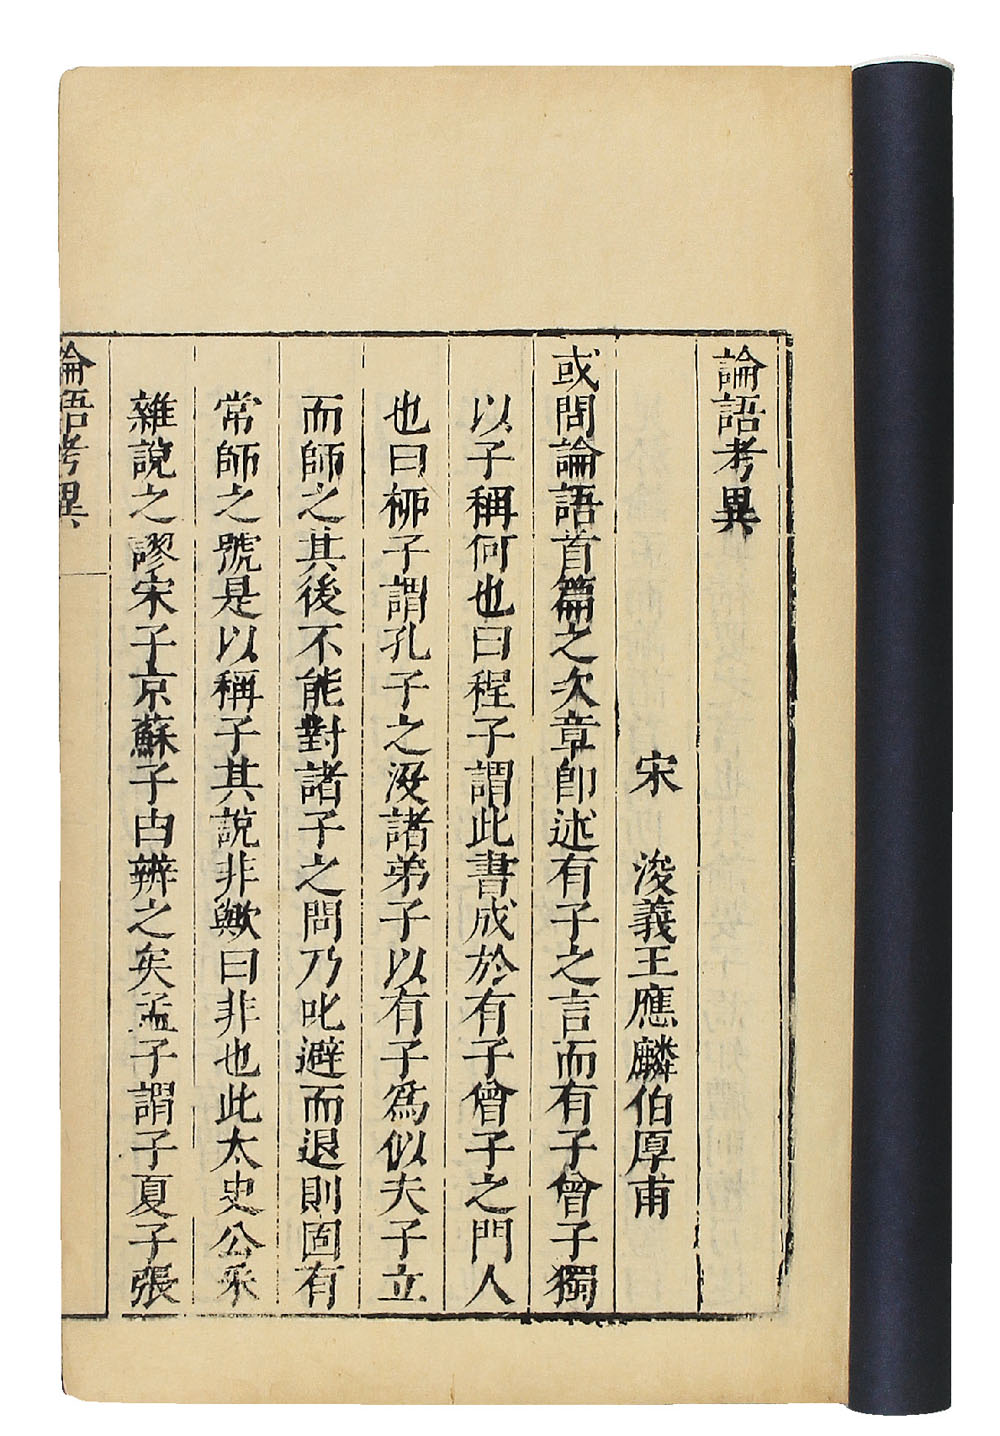 論語考異
宋 浚義王應麟伯厚甫
或問論語首篇之次章卽述有子之言而有子曾子獨
以子稱何也曰程子謂此書成於有子曾子之門人
也曰柳子謂孔子之沒諸弟子以有子爲似夫子立
而師之其後不能對諸子之問乃叱避而退則固有
常師之號是以稱子其說非歟曰非也此太史公采
雜說之謬宋子京蘇子由辨之矣孟子謂子夏子張
論語考異